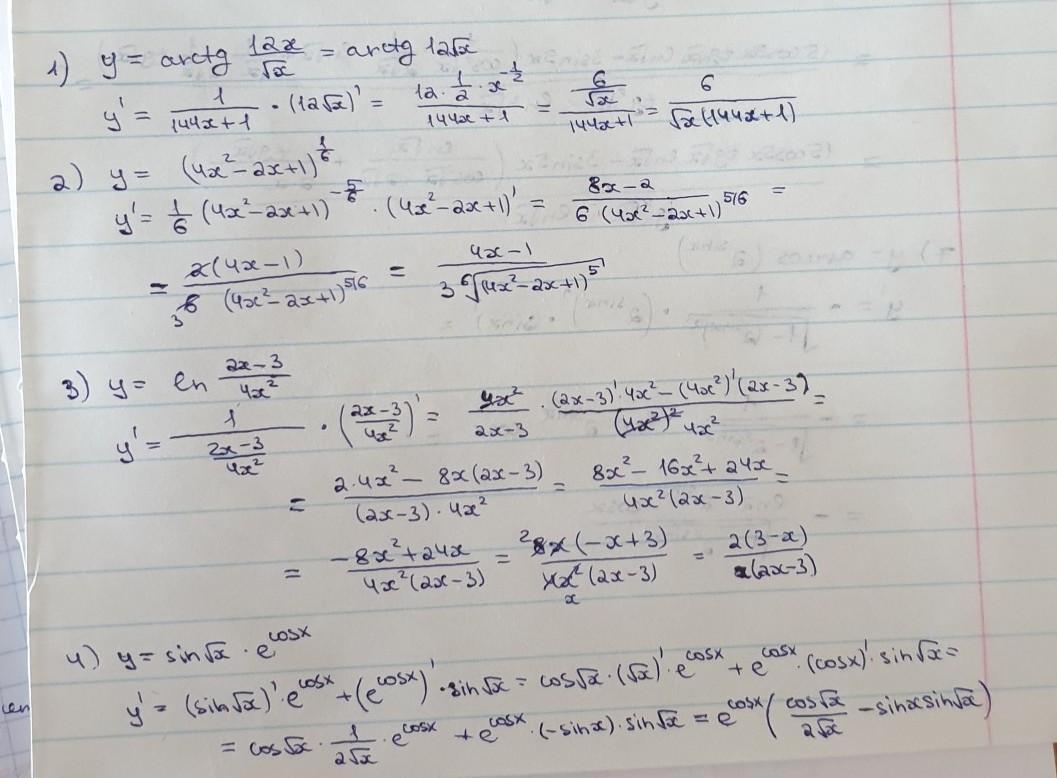 1) y = arctg 12x/√x = arctg 12√x
y' = 1/(144x+1) · (12√x)' = (12 · 1/2 · x^(-1/2))/(144x+1) = (6/√x)/(144x+1) = 6/(√x(144x+1))
2) y = (4x²-2x+1)^(1/6)
y' = 1/6 (4x²-2x+1)^(-5/6) · (4x²-2x+1)' = (8x-2)/(6 (4x²-2x+1)^(5/6)) =
= 2(4x-1)/(6 (4x²-2x+1)^(5/6)) 3 = (4x-1)/(3 ⁶√((4x²-2x+1)⁵))
3) y = ln (2x-3)/(4x²)
y' = 1/((2x-3)/(4x²)) · ((2x-3)/(4x²))' = 4x²/(2x-3) · ((2x-3)'·4x² - (4x²)'(2x-3))/((4x²)² 4x²) =
= (2·4x² - 8x(2x-3))/((2x-3)·4x²) = (8x² - 16x² + 24x)/(4x²(2x-3)) =
= (-8x²+24x)/(4x²(2x-3)) = 2 8x(-x+3)/(4x²(2x-3)) x = 2(3-x)/(x(2x-3))
4) y = sin√x · e^(cosx)
y' = (sin√x)'·e^(cosx) + (e^(cosx))'·sin√x = cos√x·(√x)'·e^(cosx) + e^(cosx)·(cosx)'·sin√x =
= cos√x · 1/(2√x) · e^(cosx) + e^(cosx)·(-sinx)·sin√x = e^(cosx)(cos√x/(2√x) - sinx sin√x)